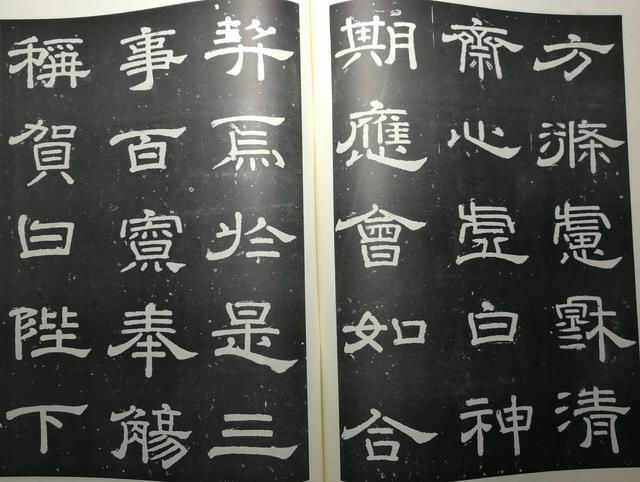 方滌慮龢清
齋心虛白神
期應會如合
契焉於是三
事百寮奉觴
稱賀曰陛下